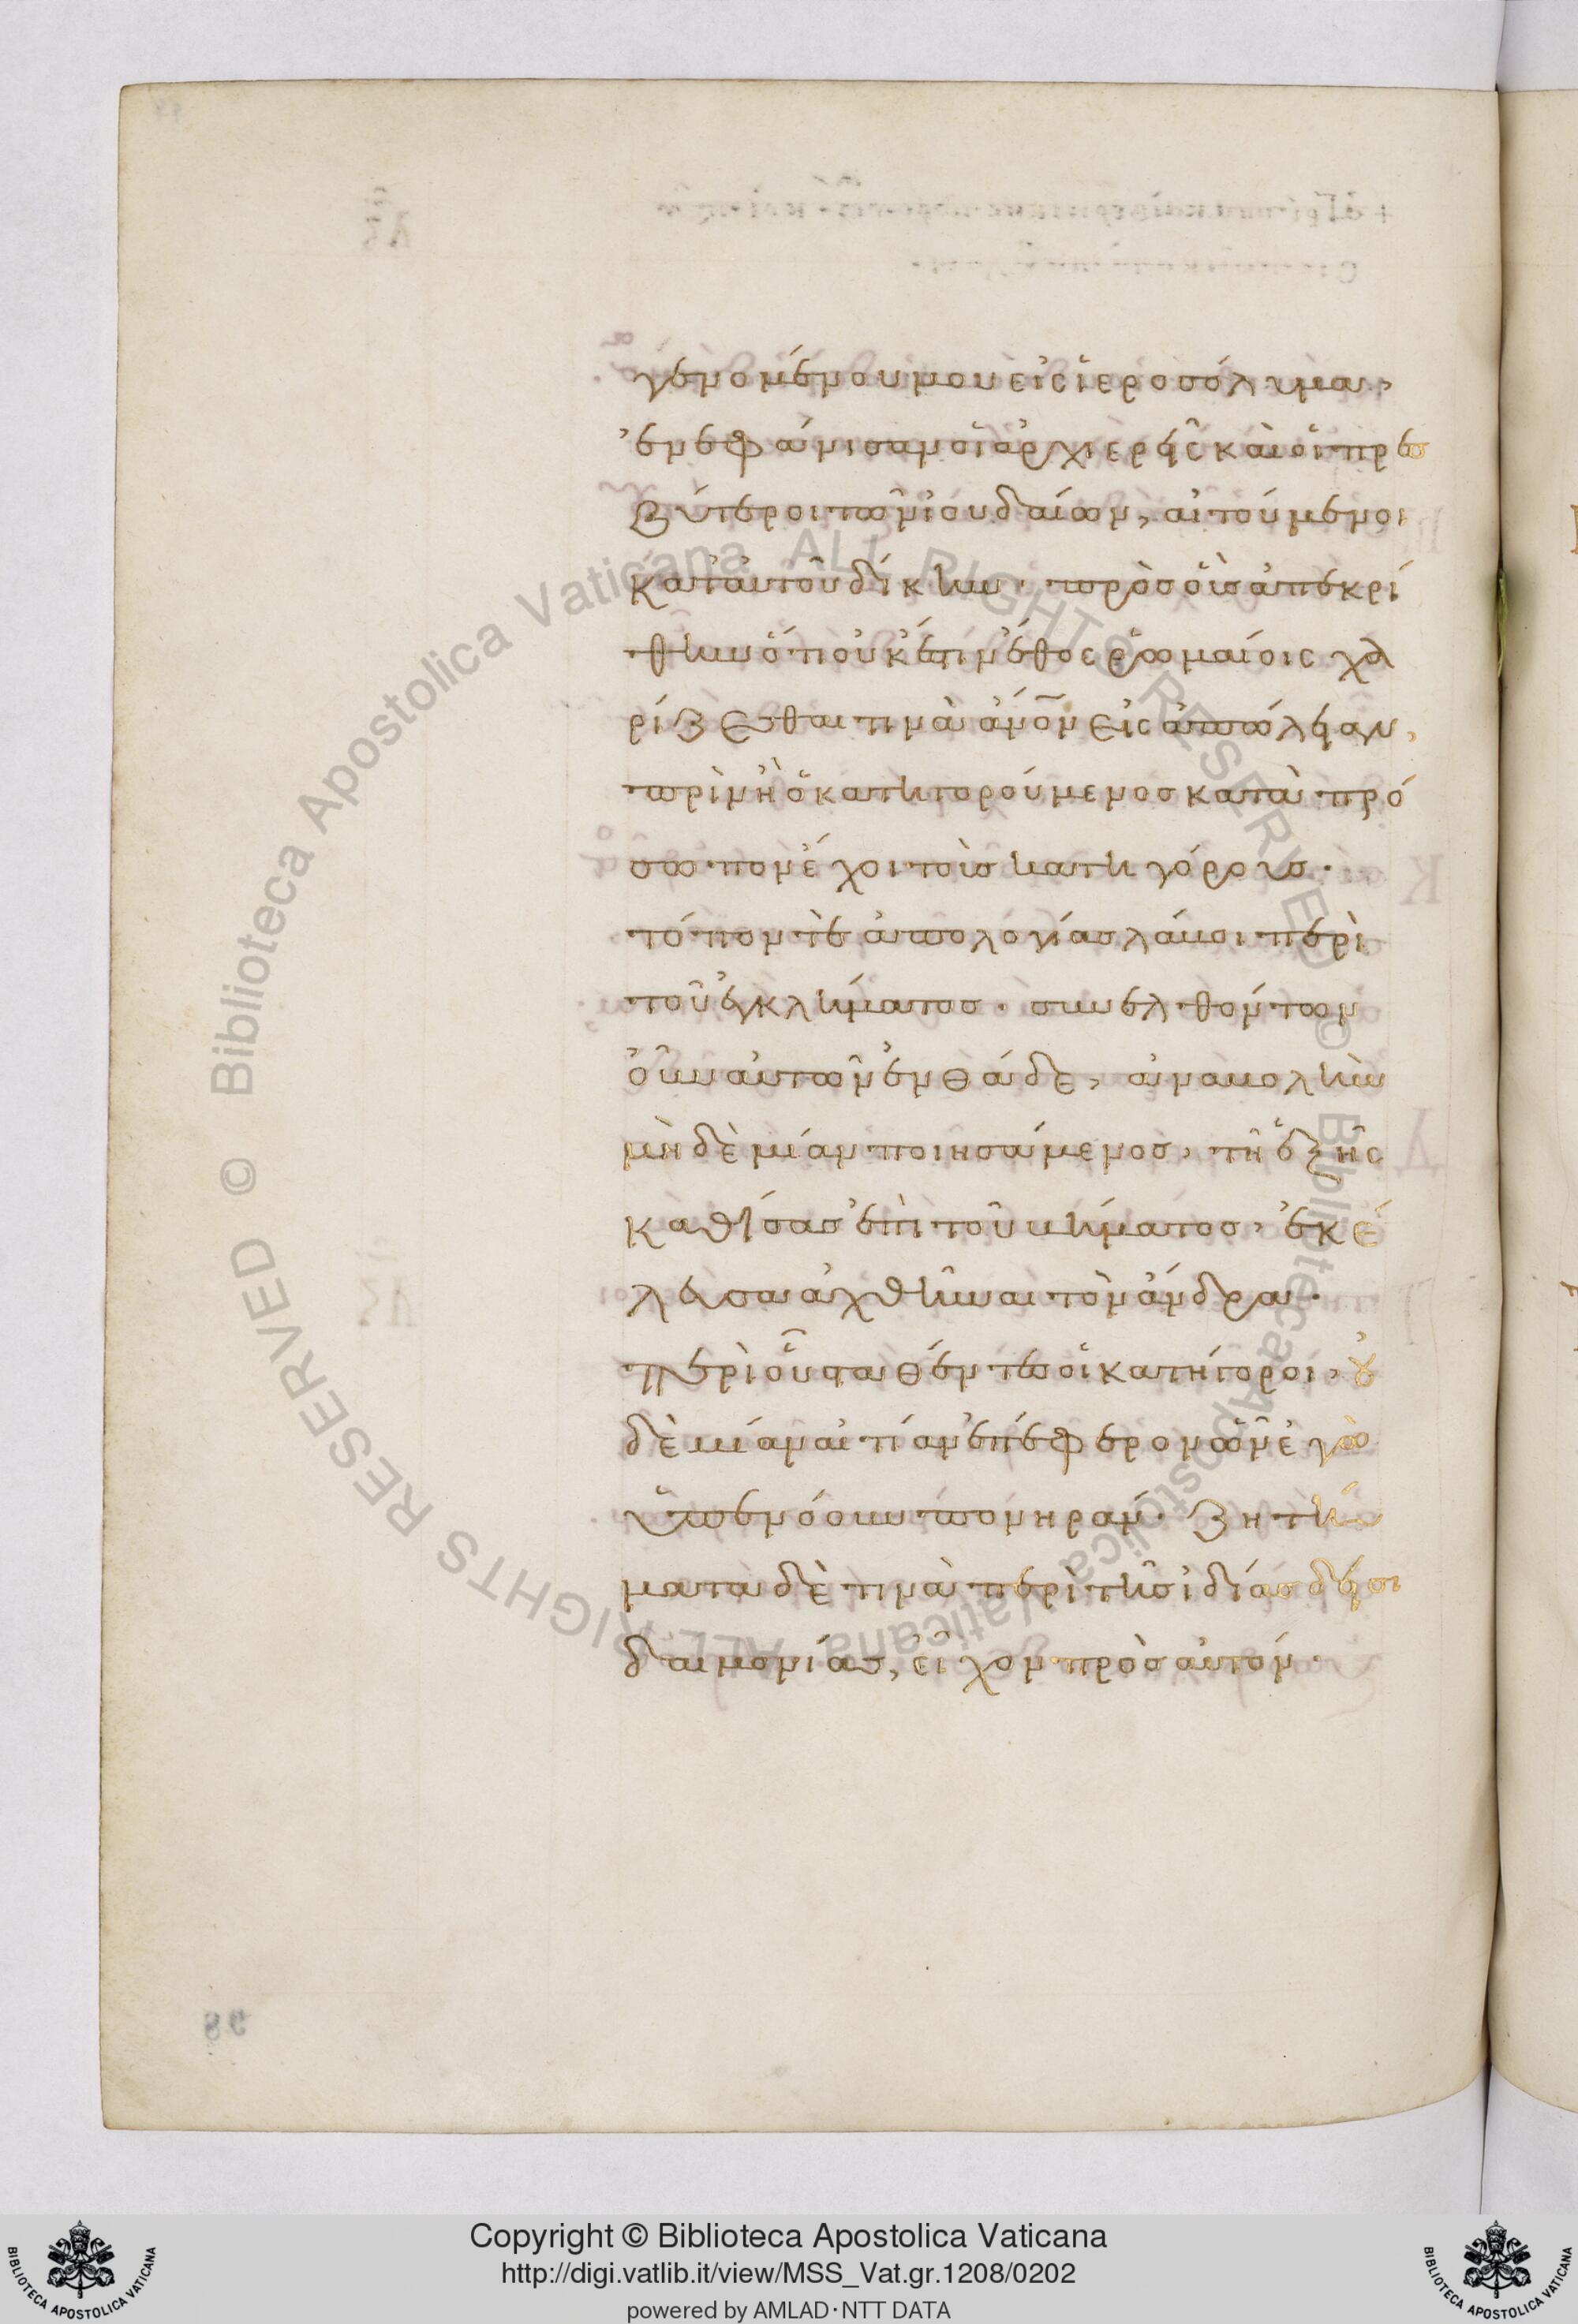 γενομένου μου εἰς ἱεροσόλυμα,
ἐνεφάνισαν οἱ ἀρχιερεῖς καὶ οἱ πρεσ
βύτεροι τῶν ἰουδαίων, αἰτούμενοι
κατ' αὐτοῦ δίκην. πρὸς οὓς ἀπεκρί
θην ὅτι οὐκ ἔστιν ἔθος ῥωμαίοις χα
ρίζεσθαι τινὰ ἄνον εἰς ἀπώλειαν,
πρὶν ἢ ὁ κατηγορούμενος κατὰ πρό
σωπον ἔχοι τοὺς κατηγόρους.
τόπον τε ἀπολογίας λάβοι περὶ
τοῦ ἐγκλήματος. συνελθόντων
οὖν αὐτῶν ἐνθάδε, ἀναβολὴν
μηδὲ μίαν ποιησάμενος, τῇ ἑξῆς
καθίσας ἐπὶ τοῦ βήματος, ἐκέ
λευσα ἀχθῆναι τὸν ἄνδρα.
περὶ οὗ σταθέντες οἱ κατήγοροι, οὐ
δὲ μίαν αἰτίαν ἐπέφερον ὧν ἐγὼ
ὑπενόουν πονηράν. ζητή
ματα δὲ τινὰ περὶ τῆς ἰδίας δεισι
δαιμονίας, εἶχον πρὸς αὐτόν.
Copyright © Biblioteca Apostolica Vaticana
http://digi.vatlib.it/view/MSS_Vat.gr.1208/0202
powered by AMLAD·NTT DATA